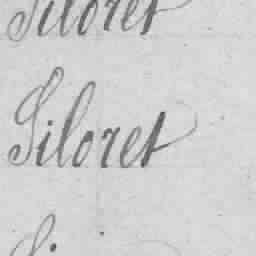 Siloret
Siloret